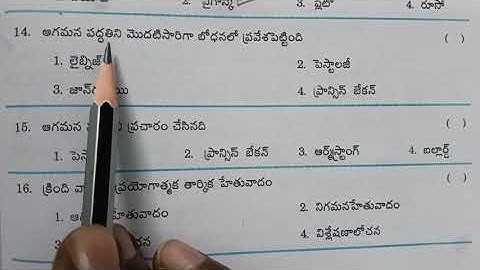 3. ప్లేటో 4. రూసో
14. ఆగమన పద్ధతిని మొదటిసారిగా బోధనలో ప్రవేశపెట్టింది ( )
1. లైబ్నిజ్ 2. పెస్టాలజీ
3. 4. ఫ్రాన్సిస్ బేకన్
15. ఆగమన ప్రచారం చేసినది ( )
1. 2. ఫ్రాన్సిస్ బేకన్ 3. ఆర్మ్‌స్ట్రాంగ్ 4. బల్లార్డ్
16. క్రింది ప్రయోగాత్మక తార్కిక హేతువాదం ( )
1. హేతువాదం 2. నిగమనహేతువాదం
3. 4. విశ్లేషణాలోచన